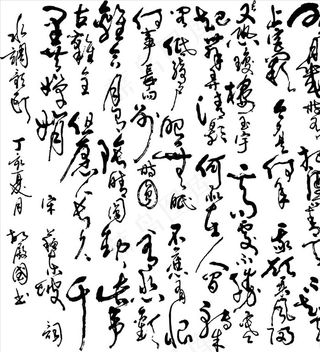 明月幾時有把酒問青天不知天
上宮闕今夕是何年我欲乘風歸
又恐瓊樓玉宇高處不勝寒
起舞弄清影何似在人間轉朱
閣低綺户照無眠不應有恨
何事長向别時圓人有悲歡
離合月有陰晴圓缺此事
古難全但願人長久千
里共嬋娟 宋蘇東坡詞
水調歌頭 丁亥夏月 國書